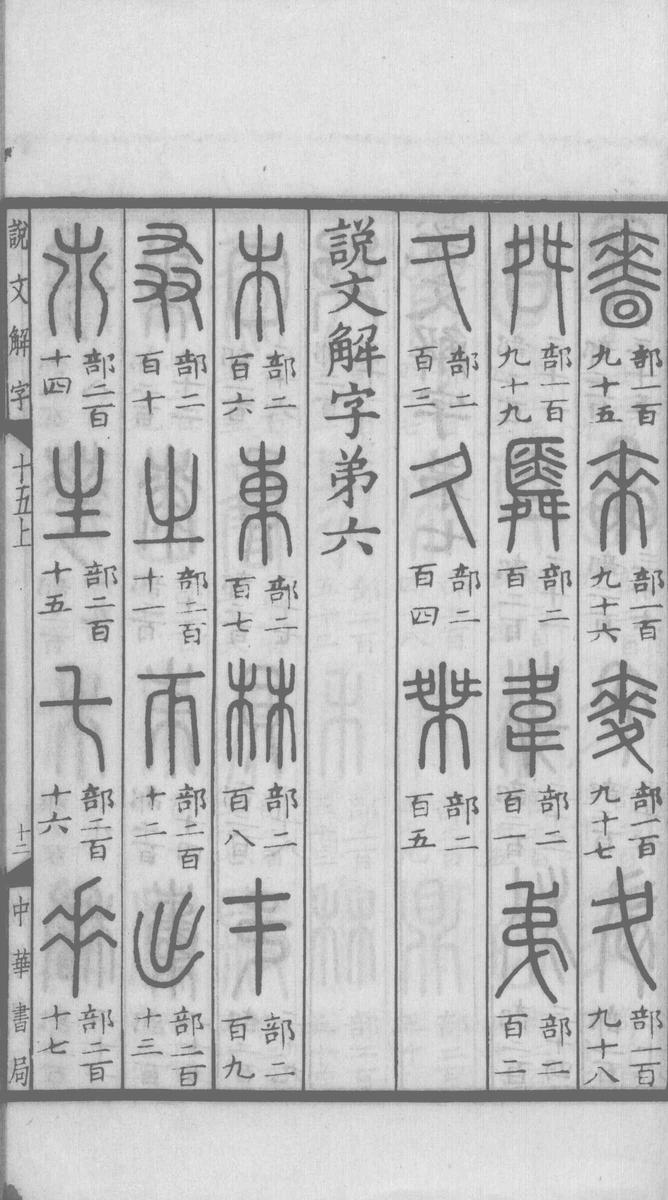 嗇部一百九十五來部一百九十六麥部一百九十七夊部一百九十八
舛部一百九十九舜部二百韋部二百一弟部二百二
夂部二百三久部二百四桀部二百五
說文解字弟六
木部二百六東部二百七林部二百八才部二百九
叒部二百十之部二百十一帀部二百十二出部二百十三
𣎵部二百十四生部二百十五乇部二百十六𠂹部二百十七
說文解字 十五上 十二 中華書局